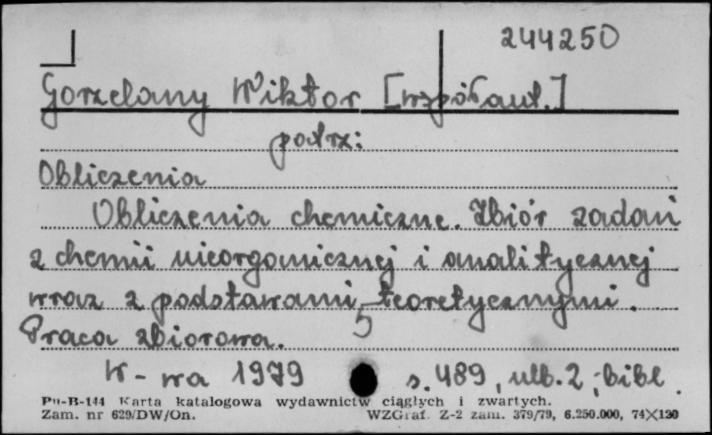 244250
Gorzelany Wiktor [współaut.]
patrz:
Obliczenia
Obliczenia chemiczne. Zbiór zadań
z chemii nieorganicznej i analitycznej
wraz z podstawami teoretycznymi.
Praca zbiorowa. 5
W-wa 1979 s. 489, nlb. 2; bibl.
Pu-B-144 Karta katalogowa wydawnictw ciągłych i zwartych.
Zam. nr 629/DW/On. WZGraf. Z-2 zam. 379/79, 6.250.000, 74×120